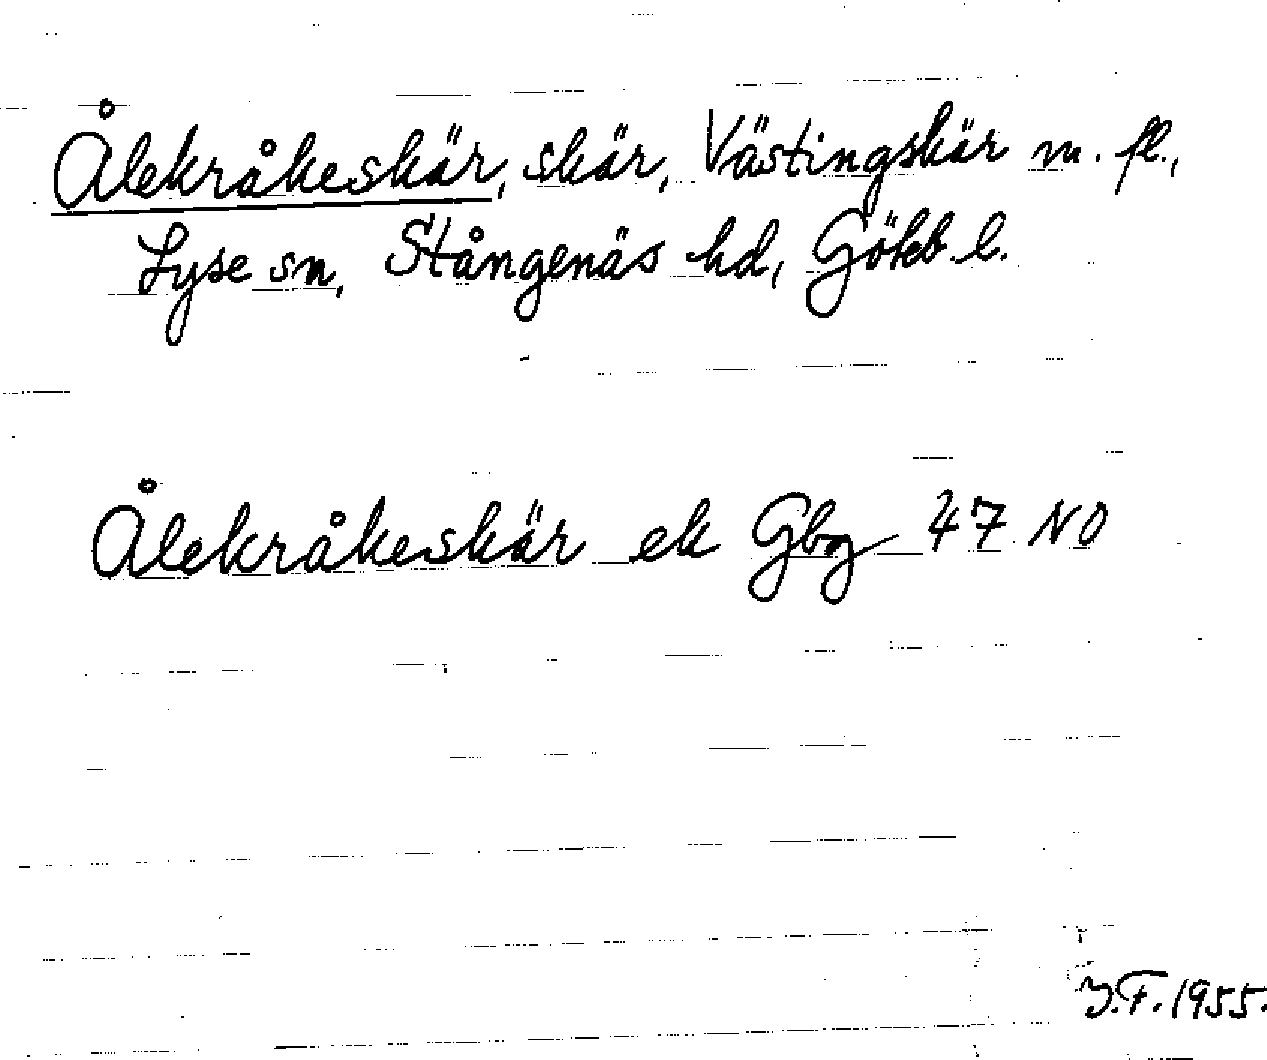 Ålekråkeskär, skär, Västingskär m. fl.,
Lyse sn, Stångenäs hd, Göteb. l.
Ålekråkeskär ek Gbg 47 NO
J.F. 1955.